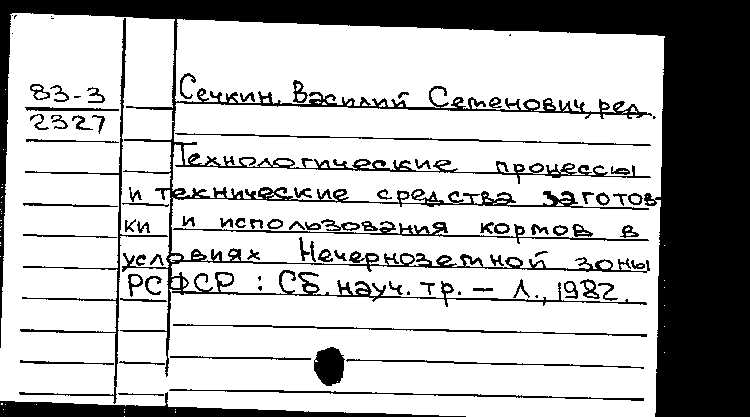 83-3 Сечкин, Василий Семенович, ред.
2327
Технологические процессы
и технические средства заготов-
ки и использования кормов в
условиях Нечерноземной зоны
РСФСР : Сб. науч. тр. — Л., 1982.